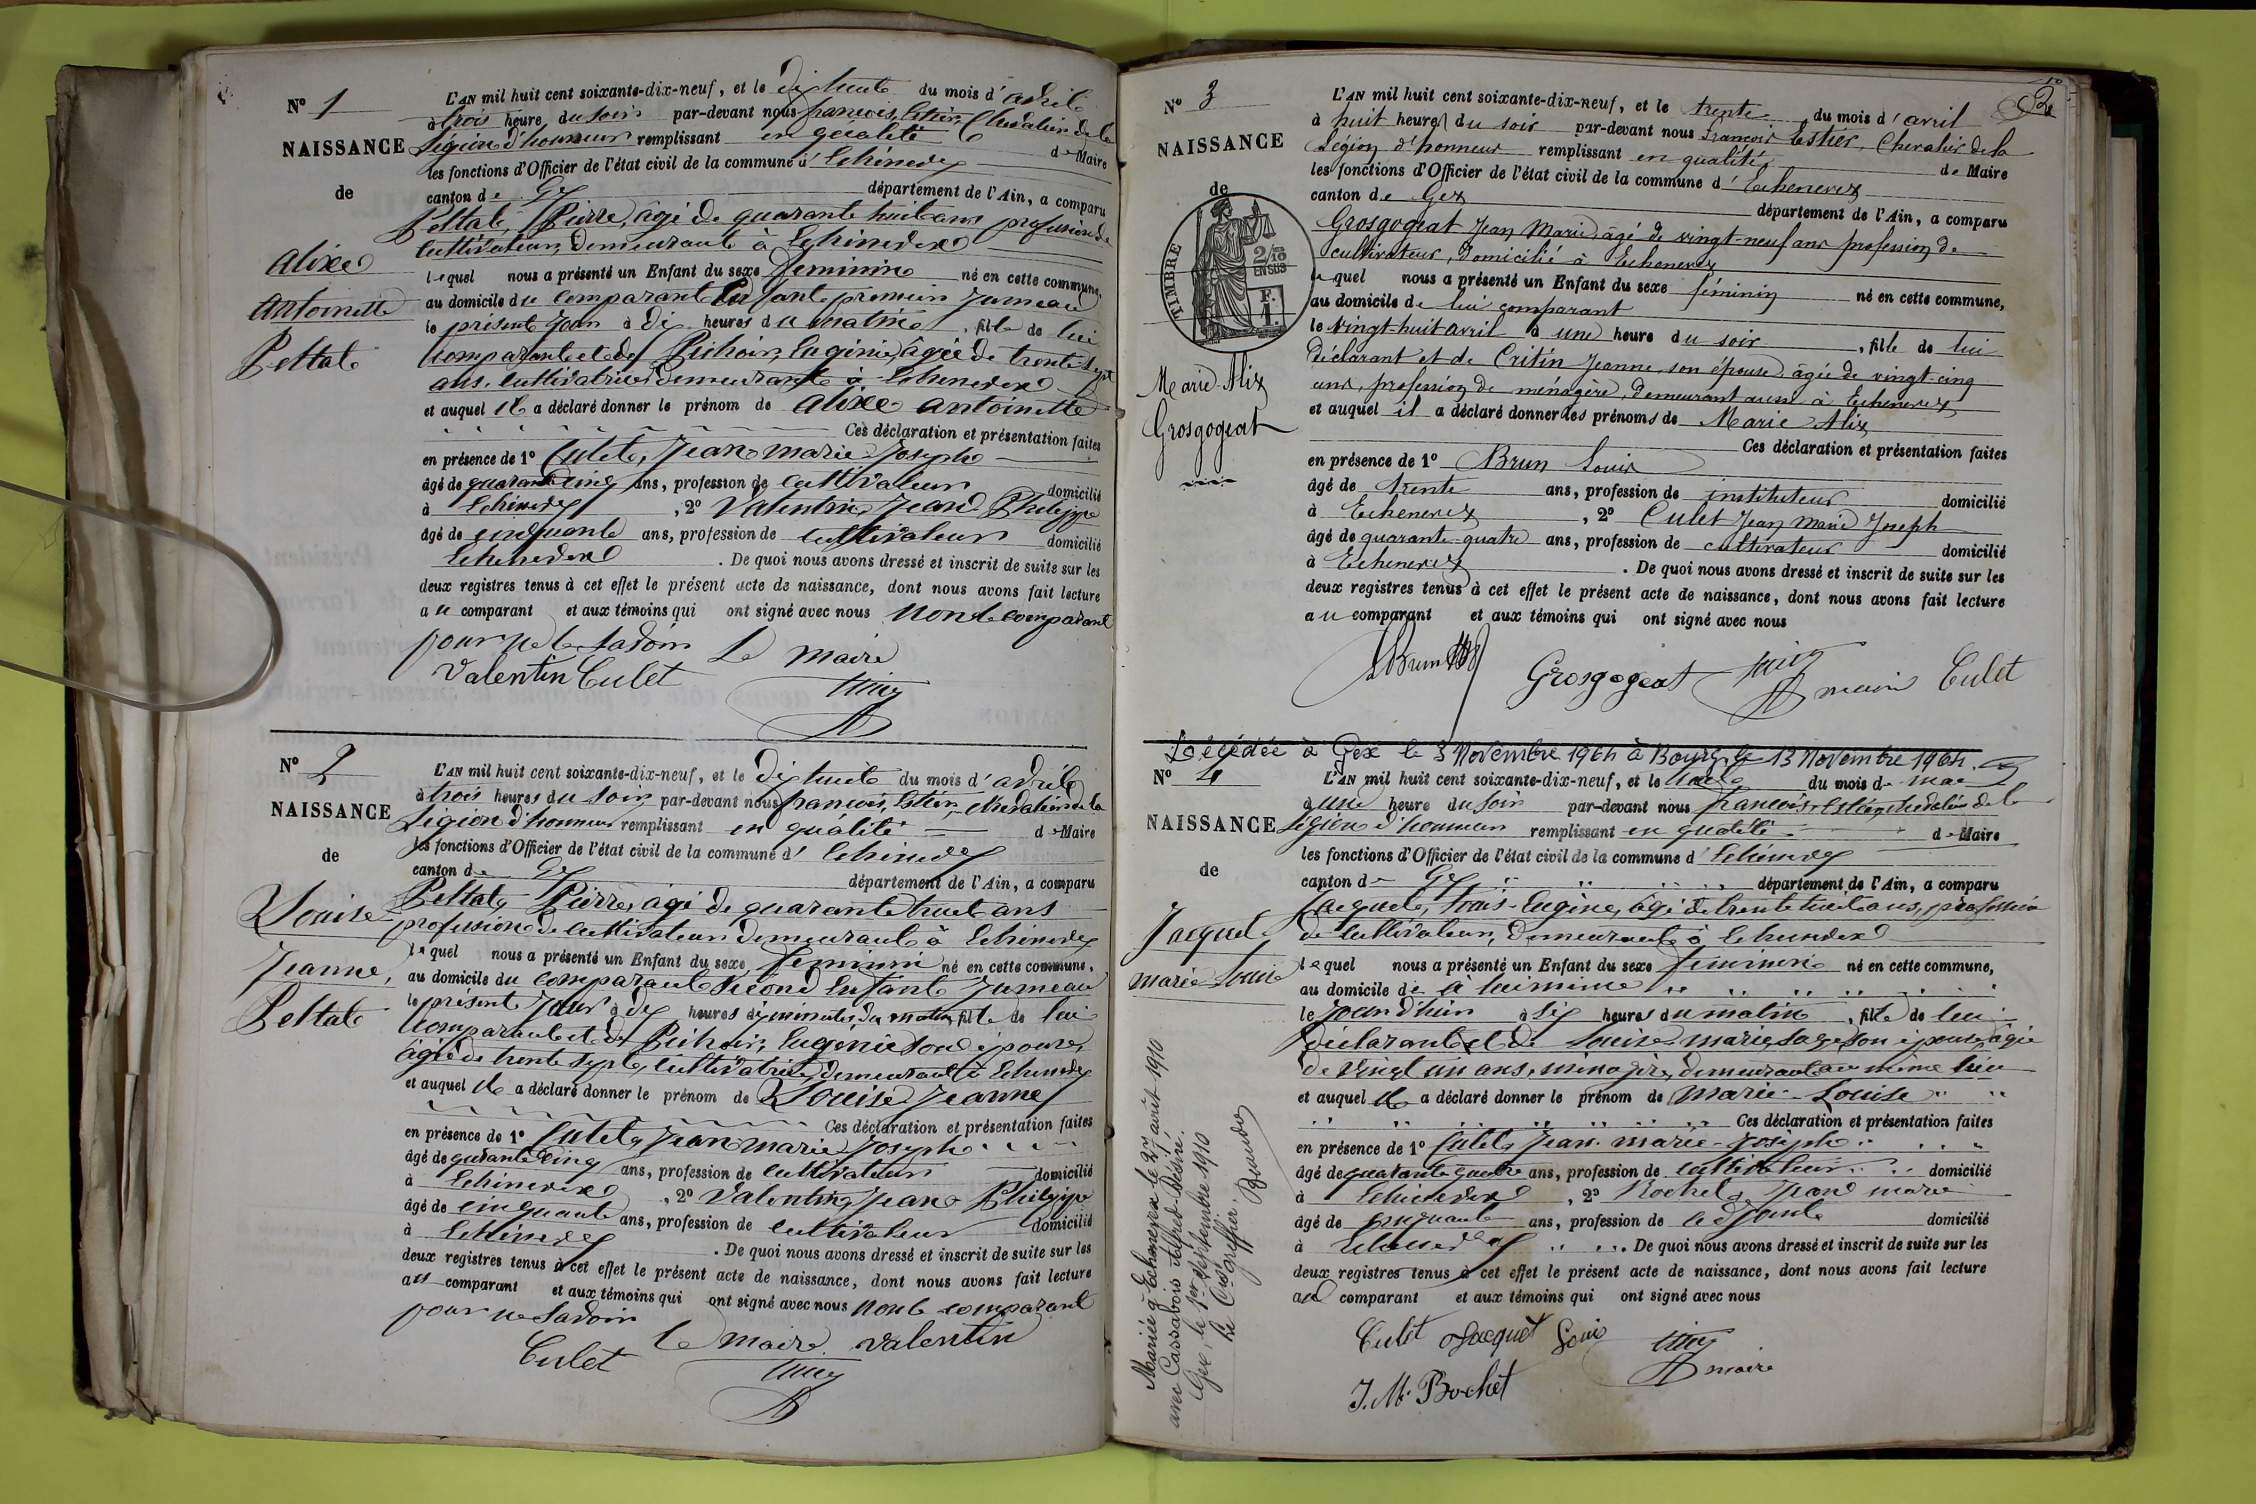 N° 1
NAISSANCE
de
Alixe
Antoinette
Peltat
L'AN mil huit cent soixante-dix-neuf, et le dix huit du mois d'avril
à trois heure du soir par-devant nous francois Estier, Chevalier de la
Légion d'honneur remplissant en qualité de Maire
les fonctions d'Officier de l'état civil de la commune d'Echenevex
canton de Gex département de l'Ain, a comparu
Peltat, Pierre, âgé de quarante huit ans profession de
cultivateur, demeurant à Echenevex
lequel nous a présenté un Enfant du sexe feminin né en cette commune,
au domicile du comparant Enfant premier jumeau
le présent jour à dix heures du matin, fille de lui
comparant et de Pichoir, Eugénie, âgée de trente sept
ans, cultivatrice, demeurant à Echenevex
et auquel il a déclaré donner le prénom de Alixe Antoinette
Ces déclaration et présentation faites
en présence de 1° Culet, Jean marie Joseph
âgé de quarante cinq ans, profession de cultivateur domicilié
à Echenevex, 2° Valentin, Jean Philippe
âgé de cinquante ans, profession de cultivateur domicilié
Echenevex. De quoi nous avons dressé et inscrit de suite sur les
deux registres tenus à cet effet le présent acte de naissance, dont nous avons fait lecture
au comparant et aux témoins qui ont signé avec nous non le comparant
pour ne le savoir Le maire
Valentin Culet
N° 2
NAISSANCE
de
Louise
Jeanne,
Peltat
L'AN mil huit cent soixante-dix-neuf, et le dix huit du mois d'avril
à trois heures du soir par-devant nous francois, Estier, chevalier de la
Légion d'honneur remplissant en qualité de Maire
les fonctions d'Officier de l'état civil de la commune d'Echenevex
canton de Gex département de l'Ain, a comparu
Peltat, Pierre, âgé de quarante huit ans
profession de cultivateur demeurant à Echenevex
lequel nous a présenté un Enfant du sexe feminin né en cette commune,
au domicile du comparant second Enfant jumeau
le présent jour à dix heures dix minutes, du matin fille de lui
comparant et de Pichoir, Eugénie son épouse,
âgée de trente sept, cultivatrice, demeurant à Echenevex
et auquel il a déclaré donner le prénom de Louise Jeanne
Ces déclaration et présentation faites
en présence de 1° Culet, Jean marie Joseph
âgé de quarante cinq ans, profession de cultivateur domicilié
à Echenevex, 2° Valentin, Jean Philippe
âgé de cinquante ans, profession de cultivateur domicilié
à Echenevex. De quoi nous avons dressé et inscrit de suite sur les
deux registres tenus à cet effet le présent acte de naissance, dont nous avons fait lecture
au comparant et aux témoins qui ont signé avec nous non le comparant
pour ne savoir
le maire Valentin
Culet
N° 3
NAISSANCE
de
TIMBRE
2/10
EN SUS
F.
1.
Marie Alix
Grosgogeat
L'AN mil huit cent soixante-dix-neuf, et le trente du mois d'avril
à huit heures du soir par-devant nous François Estier, Chevalier de la
Légion d'honneur remplissant en qualité de Maire
les fonctions d'Officier de l'état civil de la commune d'Echenevex
canton de Gex département de l'Ain, a comparu
Grosgogeat Jean Marie, âgé de vingt-neuf ans profession de
cultivateur, domicilié à Echenevex
lequel nous a présenté un Enfant du sexe féminin né en cette commune,
au domicile de lui comparant
le vingt-huit avril à une heure du soir, fille de lui
déclarant et de Critin Jeanne, son épouse, âgée de vingt-cinq
ans, profession de ménagère, demeurant aussi à Echenevex
et auquel il a déclaré donner les prénoms de Marie Alix
Ces déclaration et présentation faites
en présence de 1° Brun Louis
âgé de trente ans, profession de instituteur domicilié
à Echenevex, 2° Culet Jean Marie Joseph
âgé de quarante-quatre ans, profession de cultivateur domicilié
à Echenevex. De quoi nous avons dressé et inscrit de suite sur les
deux registres tenus à cet effet le présent acte de naissance, dont nous avons fait lecture
au comparant et aux témoins qui ont signé avec nous
LBrun Grosgogeat maire Culet
Décédée à Gex le 3 Novembre 1964 à Bourg, le 13 Novembre 1964.
N° 4
NAISSANCE
de
Jacquet
marie Louise
Mariée à Echenevex le 27 août 1910
avec Cassabois Alfred Désiré.
Gex, le 1er septembre 1910
Le Cuis Greffier
L'AN mil huit cent soixante-dix-neuf, et le du mois de mai
à une heure du soir par-devant nous francois Estier, chevalier de la
Légion d'honneur remplissant en qualité de Maire
les fonctions d'Officier de l'état civil de la commune d'Echenevex
canton de Gex département de l'Ain, a comparu
Jacquet, Louis-Eugène, âgé de trente huit ans, profession
de cultivateur, demeurant à Echenevex
lequel nous a présenté un Enfant du sexe feminin né en cette commune,
au domicile de à lui même
le jour d'hier à six heures du matin, fille de lui
déclarant et de Louise marie Sage, son épouse, âgée
de vingt un ans, ménagère, demeurant au même lieu
et auquel il a déclaré donner le prénom de Marie-Louise
Ces déclaration et présentation faites
en présence de 1° Culet, Jean-marie-Joseph
âgé de quarante quatre ans, profession de cultivateur domicilié
à Echenevex, 2° Rochet, Jean marie
âgé de cinquante ans, profession de adjoint domicilié
à Echenevex. De quoi nous avons dressé et inscrit de suite sur les
deux registres tenus à cet effet le présent acte de naissance, dont nous avons fait lecture
au comparant et aux témoins qui ont signé avec nous
Culet Jacquet Loui
maire
J. M. Rochet